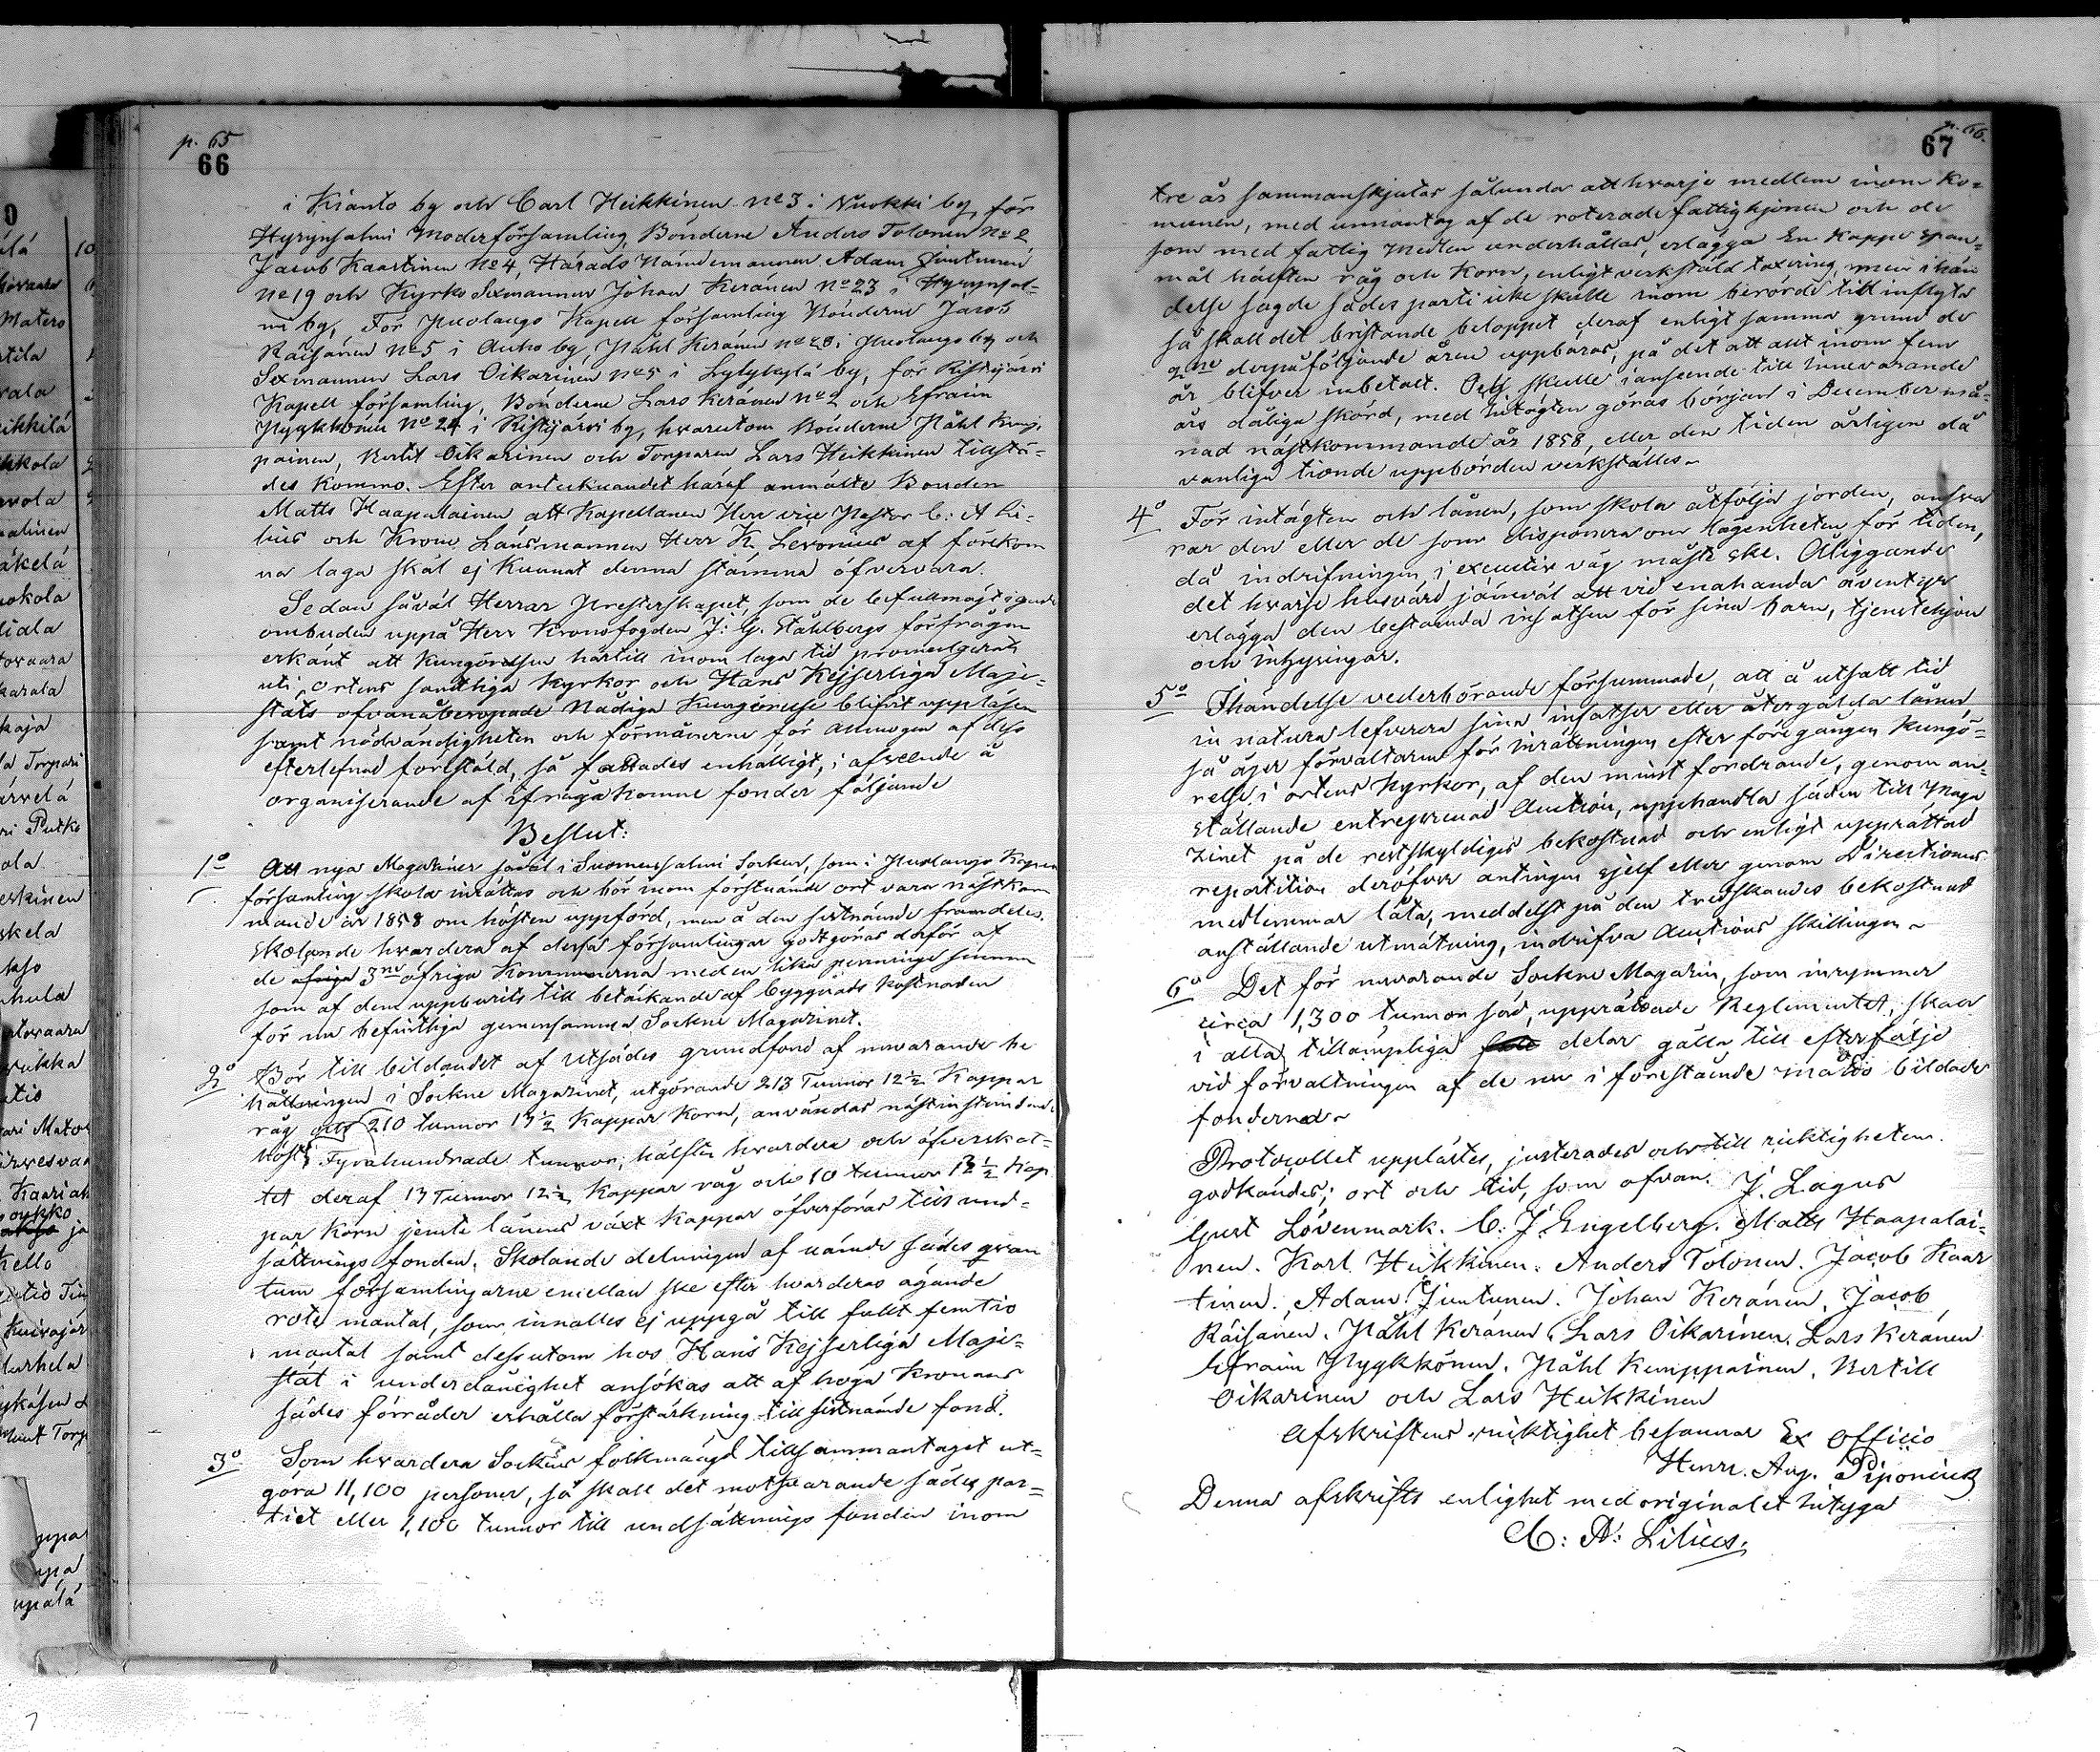 p. 65
66
i Kianto by och Carl Heikkinen No 3 i Nuokki by, för
Hyrynsalmi Moderförsamling, Bönderne Anders Tolonen No 2
Jacob Kaartinen No 4, Härads Nämdemannen Adam Juntunen
No 19 och Kyrko Sexmannen Johan Keränen No 23 i Hyrynsal-
mi by, För Puolango Kapell församling Bönderne Jacob
Räisänen No 5 i Auho by, Påhl Keränen No 20 i Puolango by och
Sexmannen Lars Oikarinen No 5 i Lylykylä by, för Ristijärvi
Kapell församling, Bönderne Lars Keränen No 2 och Efraim
Pyykkönen No 24 i Ristijärvi by, hvarutom Bönderne Påhl Kemp-
painen, Bertil Oikarinen och Torparen Lars Heikkinen tillstä-
des kommo. Efter antecknandet häraf anmälte Bonden
Matts Haapalainen att Kapellanen Herr vice Pastor C: A Li-
lius och Krono Länsmannen Herr K. Levonius af förekom
na laga skäl ej kunnat denna stämma öfvervara.
Sedan såväl Herrar Presterskapet, som de befullmägtigade
ombuden uppå Herr Kronofogden J: G. Ståhlbergs förfrågan
erkänt att Kungörelsen härtill inom laga tid promulgerats
uti ortens samtliga Kyrkor och Hans Kejserliga Maje-
stäts ofvanåberopade Nådiga Kungörelse blifvit uppläsen
samt nödvändigheten och förmånerne för Allmogen af dess
efterlefnad föreställd, så fattades enhälligt, i afseende å
organiserande af ifrågakomne fonder följande
Beslut:
1o Att nya Magasiner såväl i Suomussalmi Socken, som i Puolango Kapell
församling skola inrättas och bör inom förstnämde ort vara nästkom
mande år 1858 om hösten uppförd, men å den sistnämde framdeles.
Skolande hvardera af dessa församlingar godtgöras derför af
de öfriga 3ne öfriga Kommunerna med en lika penninge summa
som af dem uppburits till betäckande af byggnads kostnaden
för nu befintliga gemensamma Sockne Magasinet.
2o Bör till bildandet af Utsädes grundfond af nuvarande be
hållningen i Sockne Magasinet, utgörande 213 Tunnor 12½ Kappar
råg och 210 tunnor 13½ Kappar Korn, användas nästinstundande
höst Fyrahundrade tunnor, hälften hvardera och öfverskot-
tet deraf 13 Tunnor 12½ Kappar råg och 10 tunnor 13½ Kap
par Korn jemte lånens växt Kappar öfverföras till und-
sättnings fonden. Skolande delningen af nämde sädes qvan
tum församlingarne emellan ske efter hvarderas ägande
rote mantal, som innalles ej uppgå till fullt femtio
mantal samt dessutom hos Hans Kejserliga Maje-
stät i underdånighet ansökas att af höga Kronans
sädes förråder erhålla förstärkning till sistnämde fond.
3o Som hvardera Sockens folkmängd tillsammantaget ut-
göra 11,100 personer, så skall det motsvarande sädes par-
tiet eller 1,100 tunnor till undsättnings fonden inom
p. 66.
67
tre år sammanskjutas sålunda att hvarje medlem inom Ko-
munen, med unnantag af de roterade fattighjonen och de
som med fattig medlen underhållas, erlägga En Kappe span-
mål hälften råg och Korn, enligt verkställd taxering, men i hän
delse sagde sädes parti icke skulle inom berörde tid inflyta
så skall det bristande beloppet deraf enligt samma grund de
2ne derpåföljande åren uppbäras, på det att allt inom fem
år blifver inbetalt. Och skulle i anseende till innevarande
års dåliga skörd, med Intägten göras början i December må-
nad nästkommande år 1858, eller den tiden årligen då
vanliga tionde uppbörden verkställes.
4o För intägten och lånen, som skola åtfölja jorden, ansva
rar den eller de som disponera om lägenheten för tiden,
då indrifningen i executiv väg måste ske. Åliggande
det hvarje husvärd jämväl att vid enahanda äventyr
erlägga den bestämda insatsen för sina barn, tjenstehjon
och inhysingar.
5o Ihändelse vederbörande försummade, att å utsatt tid
in natura lefverera sina insatser eller återgälda lånen,
så äger förvaltaren för inrättningen efter föregången Kungö-
relse i ortens Kyrkor, af den minst fordrande, genom an-
ställande entreprenad Auction, upphandla säden till Maga
zinet på de restskyldiges bekostnad och enligt upprättad
repartition deröfver antingen sjelf eller genom Directionens
medlemmar låta, meddelst på den tredskandes bekostnad
anställande utmätning, indrifva Auctions skillingen.
6o Det för nuvarande Sockne Magasin, som inrymmer
circa 1,300 tunnor säd, upprättade Reglementet, skall
i alla tillämpliga delar gälla till efterfölje
vid förvaltningen af de nu i förestående måtto bildade
fonderna.
Protocollet upplästes, justerades och till riktigheten
godkändes; ort och tid, som ofvan. J. Lagus
Gust Lövenmark. C. J. Engelberg. Matts Haapalai-
nen. Karl Heikkinen. Anders Tolonen. Jacob Kaar
tinen. Adam Juntunen. Johan Keränen. Jacob
Räisänen. Påhl Keränen. Lars Oikarinen. Lars Keränen
Efraim Pyykkönen. Påhl Kemppainen. Bertill
Oikarinen och Lars Heikkinen
Afskriftens riktighet besannar Ex officio
Henr. Aug. Piponius
Denna afskrifts enlighet med originalet intyga
C: A: Lilius.